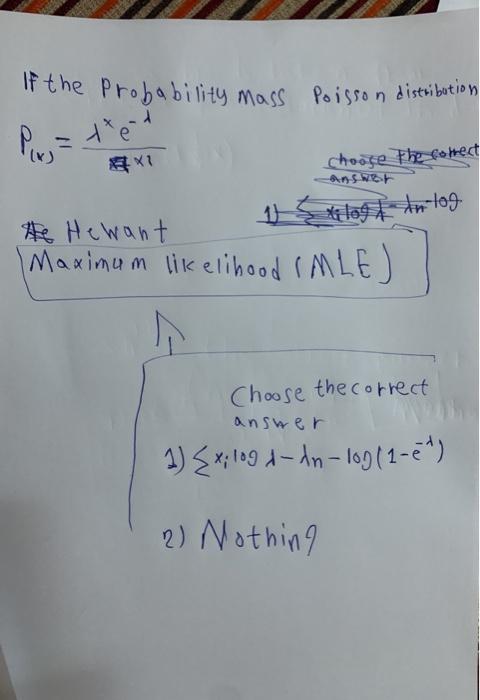 If the Probability mass Poisson distribution
P(x) = λ^x e^-λ / x!
choose the correct
answer
1) Σ xi log λ - λn - log
He want
Maximum likelihood (MLE)
Choose the correct
answer
1) Σxi log λ - λn - log(1-e^-λ)
2) Nothing